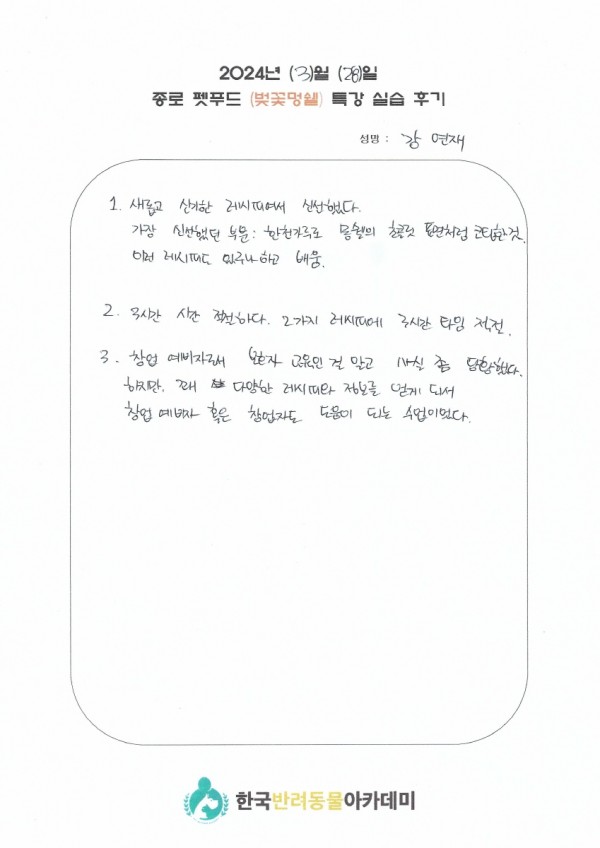 2024년 (3)월 (28)일
종로 펫푸드 (벚꽃멍쉘) 특강 실습 후기
성명 : 강 연재
1. 새롭고 신기한 레시피여서 신선했다.
가장 신선했던 부분 : 한천가루로 몽쉘의 초콜릿 표면처럼 코팅한 것.
이런 레시피도 있구나 하고 배움.
2. 3시간 시간 적절하다. 2가지 레시피에 3시간 타임 적절.
3. 창업 예비자로서 혼자 교육인 걸 알고 사실 좀 당황했다.
하지만, 꽤 다양한 레시피와 정보를 얻게 되서
창업 예비자 혹은 창업자도 도움이 되는 수업이었다.
한국반려동물아카데미